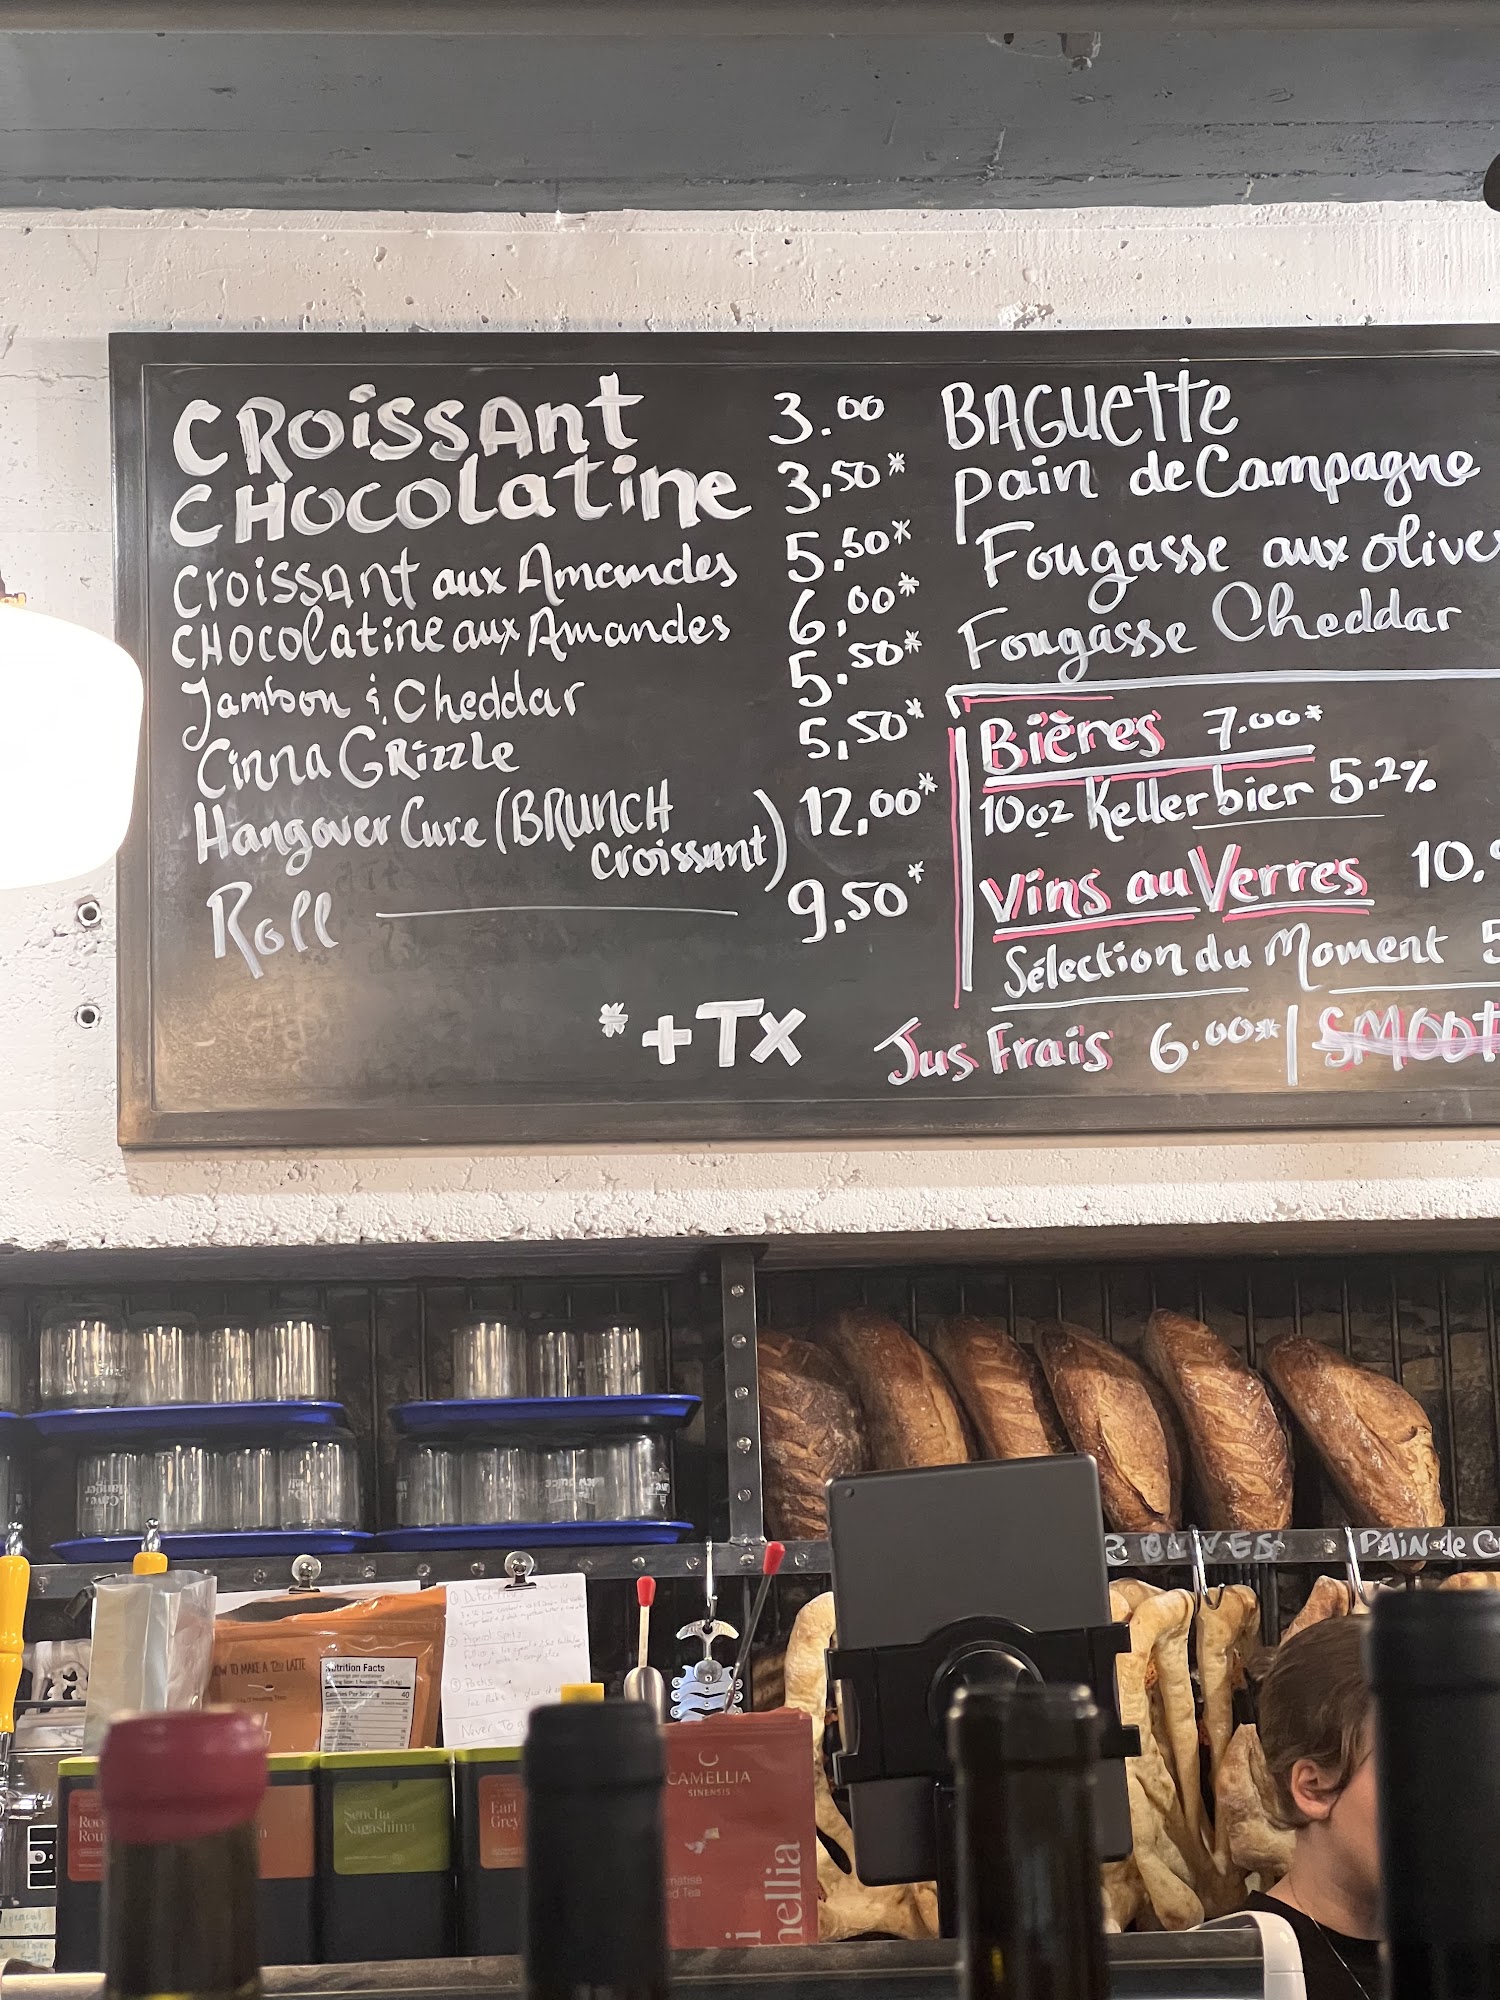 CROISSANT 3.00
CHOCOLATINE 3.50*
CROISSANT aux Amandes 5.50*
CHOCOLATINE aux Amandes 6.00*
Jambon & Cheddar 5.50*
Cinna GRizzle 5,50*
Hangover Cure (BRUNCH 12,00*
Croissant)
Roll 9,50*
*+Tx
BAGUETTE
Pain de Campagne
Fougasse aux olives
Fougasse Cheddar
Bières 7.00*
10oz Kellerbier 5.2%
Vins au Verres 10,
Sélection du Moment 5
Jus Frais 6.00* | SMOOT
OLIVES
PAIN de C
HOW TO MAKE A LATTE
Nutrition Facts
Calories Per Serving 40
Roo
Rou
Sencha
Nagashima
Earl
Grey
CAMELLIA
SINENSIS
matisé
ed Tea
nellia